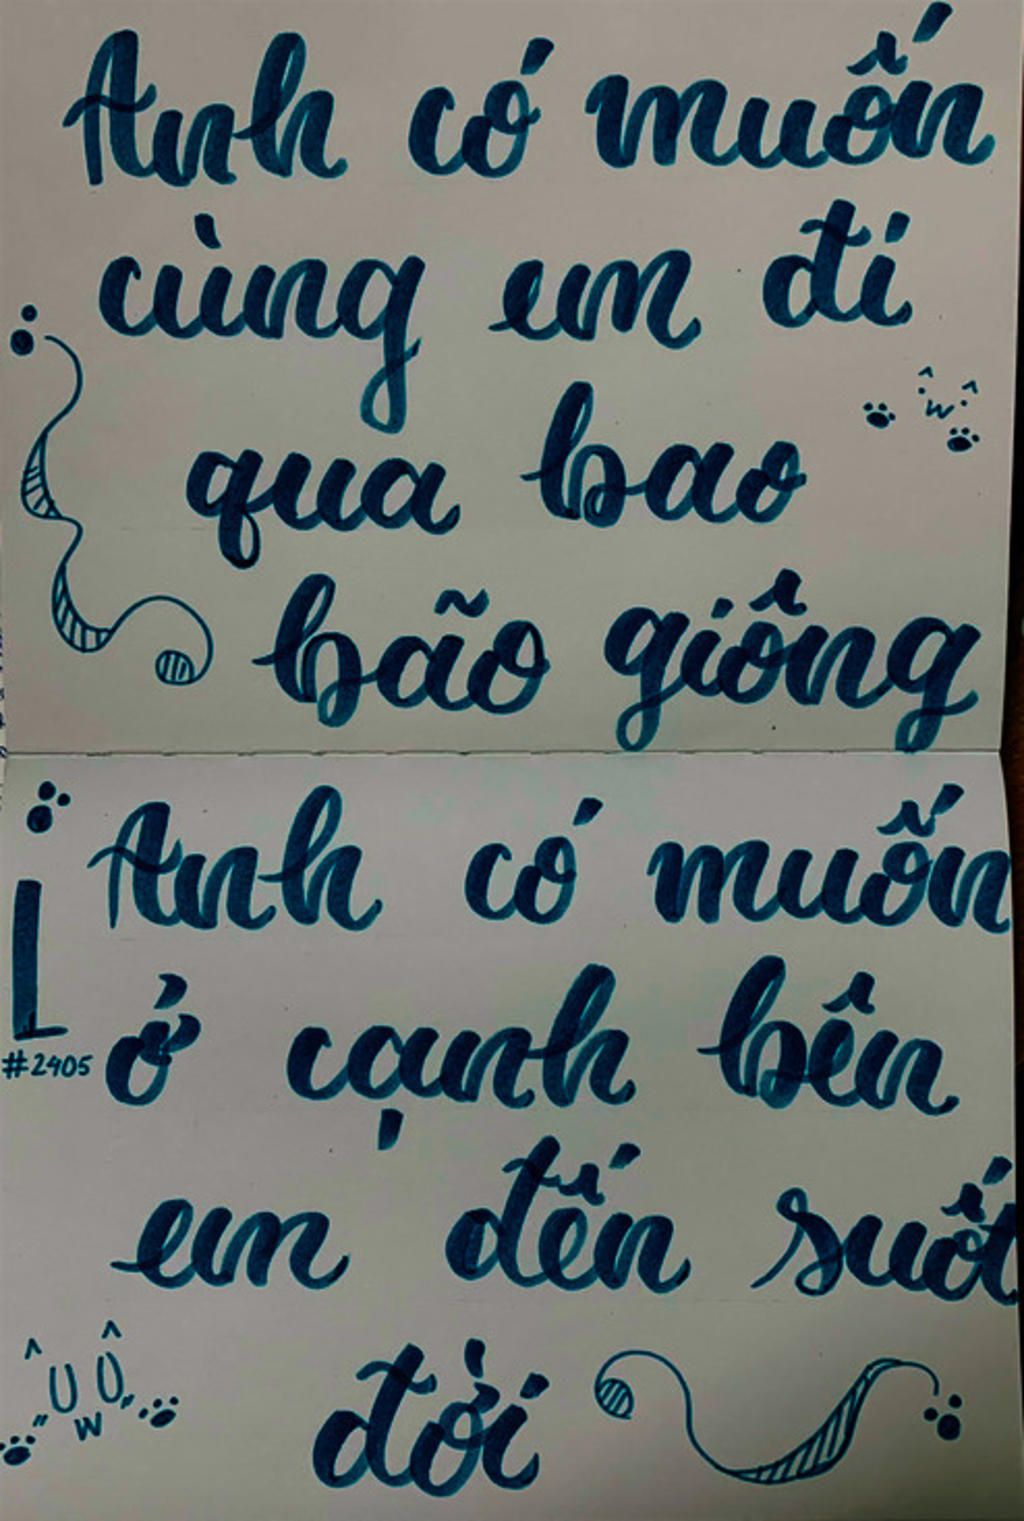 Anh có muốn
cùng em đi
qua bao
bão giông
Anh có muốn
ở cạnh bên
em đến suốt
đời
L
#2405